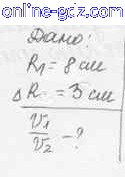 online-gdz.com
Дано:
R₁ = 8 см
ΔR = 3 см
v₁/v₂ - ?